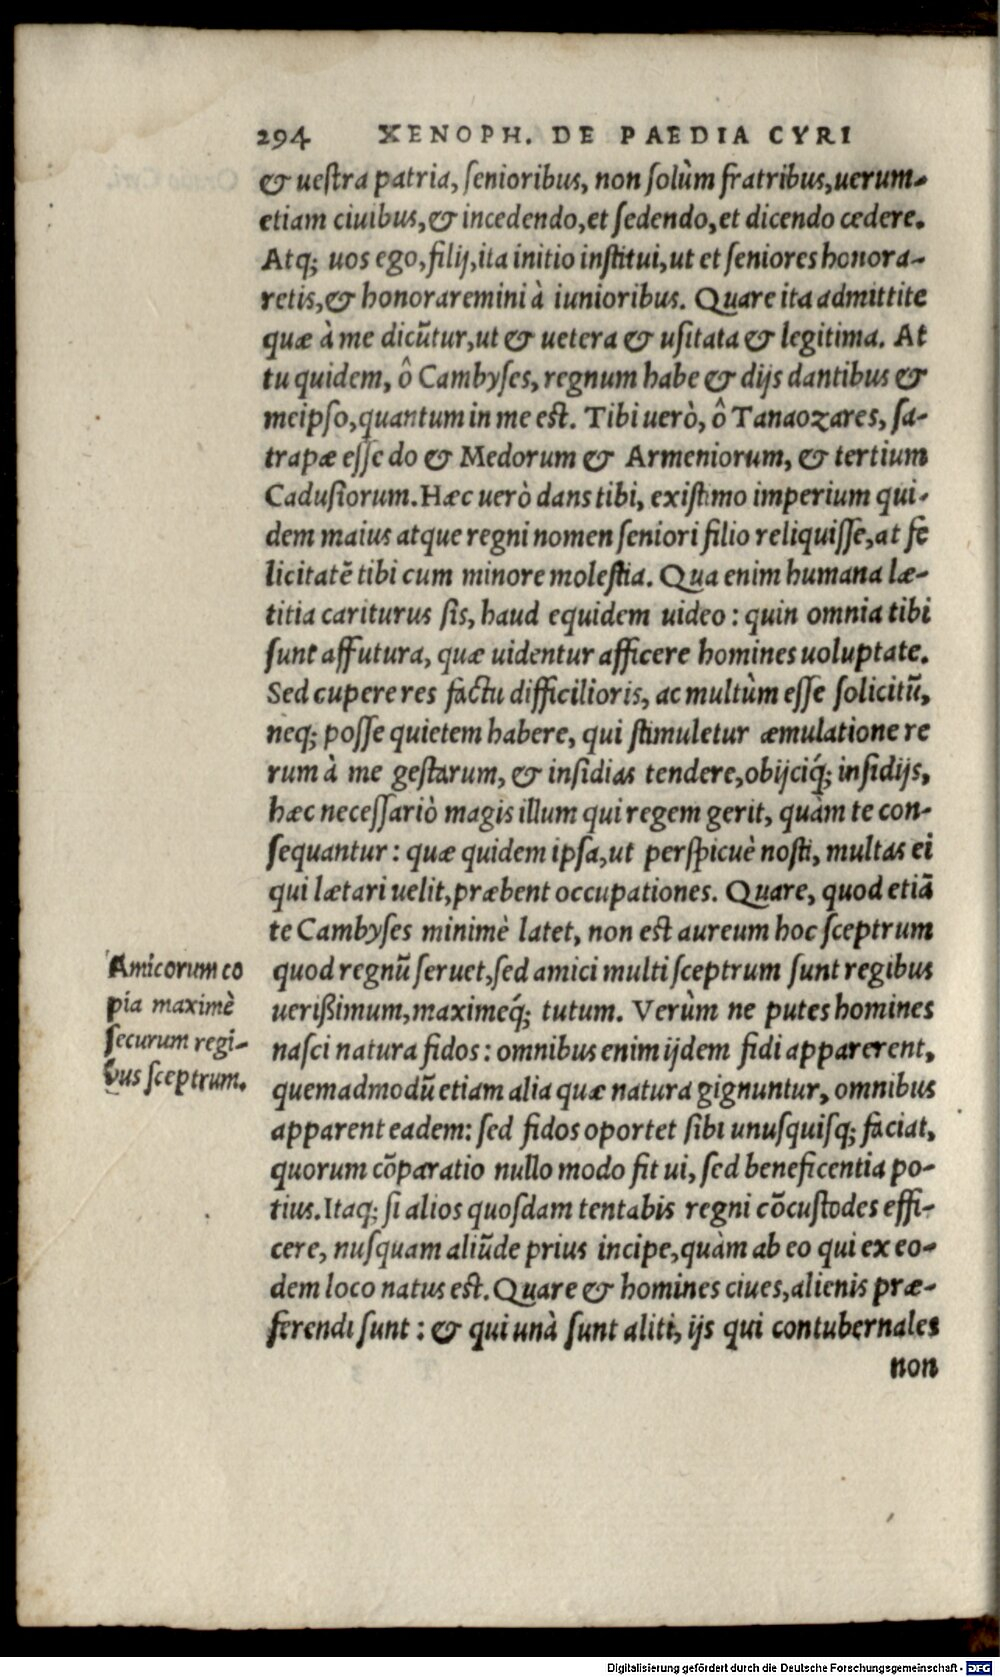 294 XENOPH. DE PAEDIA CYRI
& uestra patria, senioribus, non solùm fratribus, uerum-
etiam ciuibus, & incedendo, et sedendo, et dicendo cedere.
Atq; uos ego, filij, ita initio institui, ut et seniores honora-
retis, & honoraremini à iunioribus. Quare ita admittite
quæ à me dicũtur, ut & uetera & usitata & legitima. At
tu quidem, ô Cambyses, regnum habe & dijs dantibus &
meipso, quantum in me est. Tibi uerò, ô Tanaozares, sa-
trapæ esse do & Medorum & Armeniorum, & tertium
Cadusiorum. Hæc uerò dans tibi, existimo imperium qui-
dem maius atque regni nomen seniori filio reliquisse, at fe
licitatẽ tibi cum minore molestia. Qua enim humana læ-
titia cariturus sis, haud equidem uideo: quin omnia tibi
sunt affutura, quæ uidentur afficere homines uoluptate.
Sed cupere res factu difficilioris, ac multùm esse solicitũ,
neq; posse quietem habere, qui stimuletur æmulatione re
rum à me gestarum, & insidias tendere, obijciq́; insidijs,
hæc necessariò magis illum qui regem gerit, quàm te con-
sequantur: quæ quidem ipsa, ut perspicuè nosti, multas ei
qui lætari uelit, præbent occupationes. Quare, quod etiã
te Cambyses minimè latet, non est aureum hoc sceptrum
Amicorum co
pia maximè
securum regi-
bus sceptrum.
quod regnũ seruet, sed amici multi sceptrum sunt regibus
uerißimum, maximeq́; tutum. Verùm ne putes homines
nasci natura fidos: omnibus enim ijdem fidi apparerent,
quemadmodũ etiam alia quæ natura gignuntur, omnibus
apparent eadem: sed fidos oportet sibi unusquisq; faciat,
quorum cõparatio nullo modo fit ui, sed beneficentia po-
tius. Itaq; si alios quosdam tentabis regni cõcustodes effi-
cere, nusquam aliũde prius incipe, quàm ab eo qui ex eo-
dem loco natus est. Quare & homines ciues, alienis præ-
ferendi sunt: & qui unà sunt aliti, ijs qui contubernales
non
Digitalisierung gefördert durch die Deutsche Forschungsgemeinschaft - DFG